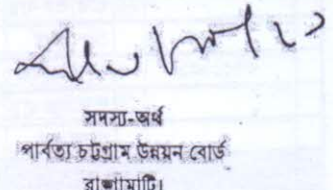 সদস্য-অর্থ
পার্বত্য চট্টগ্রাম উন্নয়ন বোর্ড
রাঙ্গামাটি।